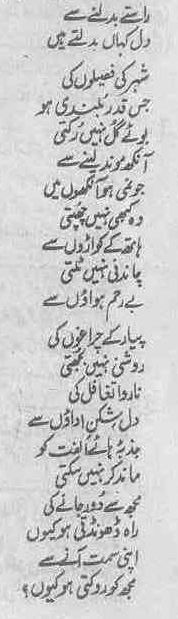 راستے بدلنے سے
دل کہاں بدلتے ہیں
شہر کی فصیلوں کی
جس قدر بلندی ہو
بوئے گل نہیں رکتی
آنکھ موند لینے سے
جو نمی ہو آنکھوں میں
وہ کبھی نہیں چھپتی
ہاتھ کے کواڑوں سے
چاندنی نہیں تھمتی
بے رحم ہواؤں سے
پیار کے چراغوں کی
روشنی نہیں بجھتی
ناروا تغافل کی
دل شکن اداؤں سے
جذبہ ہائے الفت کو
ماند کر نہیں سکتی
مجھ سے دور جانے کی
راہ ڈھونڈتی ہو کیوں
اپنی سمت آنے سے
مجھ کو روکتی ہو کیوں؟